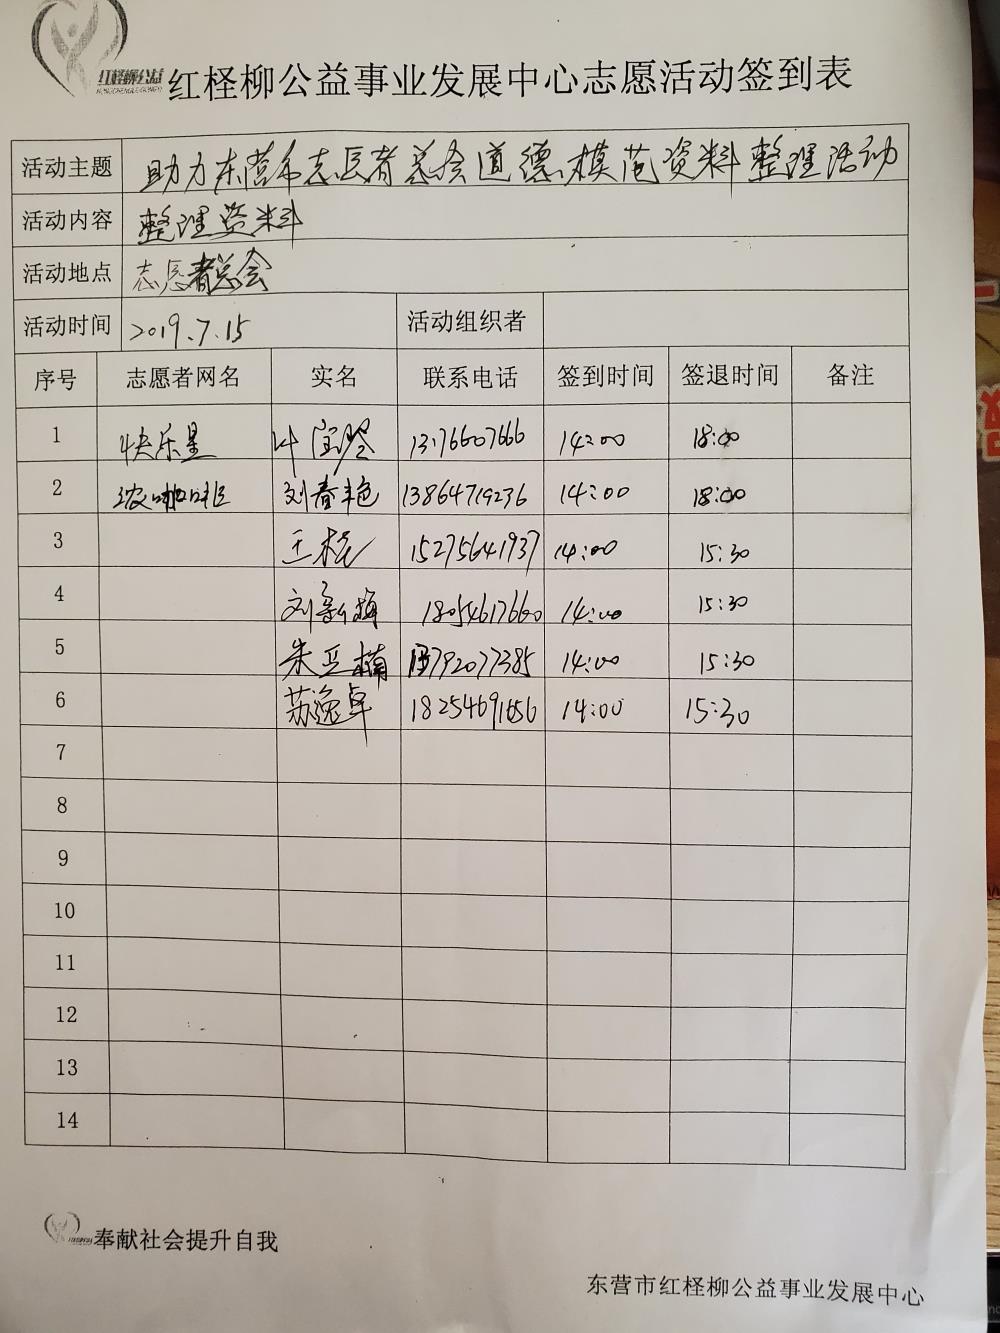 红柽柳公益
红柽柳公益事业发展中心志愿活动签到表
活动主题 助力东营市志愿者总会道德模范资料整理活动
活动内容 整理资料
活动地点 志愿者总会
活动时间 2019.7.15 活动组织者
序号 志愿者网名 实名 联系电话 签到时间 签退时间 备注
1 快乐星 叶 13176607666 14:00 18:00
2 浓咖啡 刘春艳 13864719236 14:00 18:00
3 王 15275641937 14:00 15:30
4 刘新梅 18054617660 14:00 15:30
5 朱亚楠 13792077385 14:00 15:30
6 苏逸卓 18254691656 14:00 15:30
7
8
9
10
11
12
13
14
奉献社会提升自我
东营市红柽柳公益事业发展中心